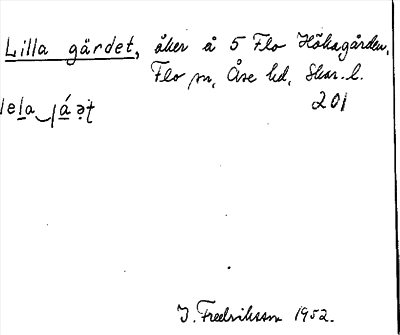 Lilla gärdet, åker å 5 Flo Håkagården,
Flo sn, Åse hd, Skar. l.
201
J. Fredriksson 1952.